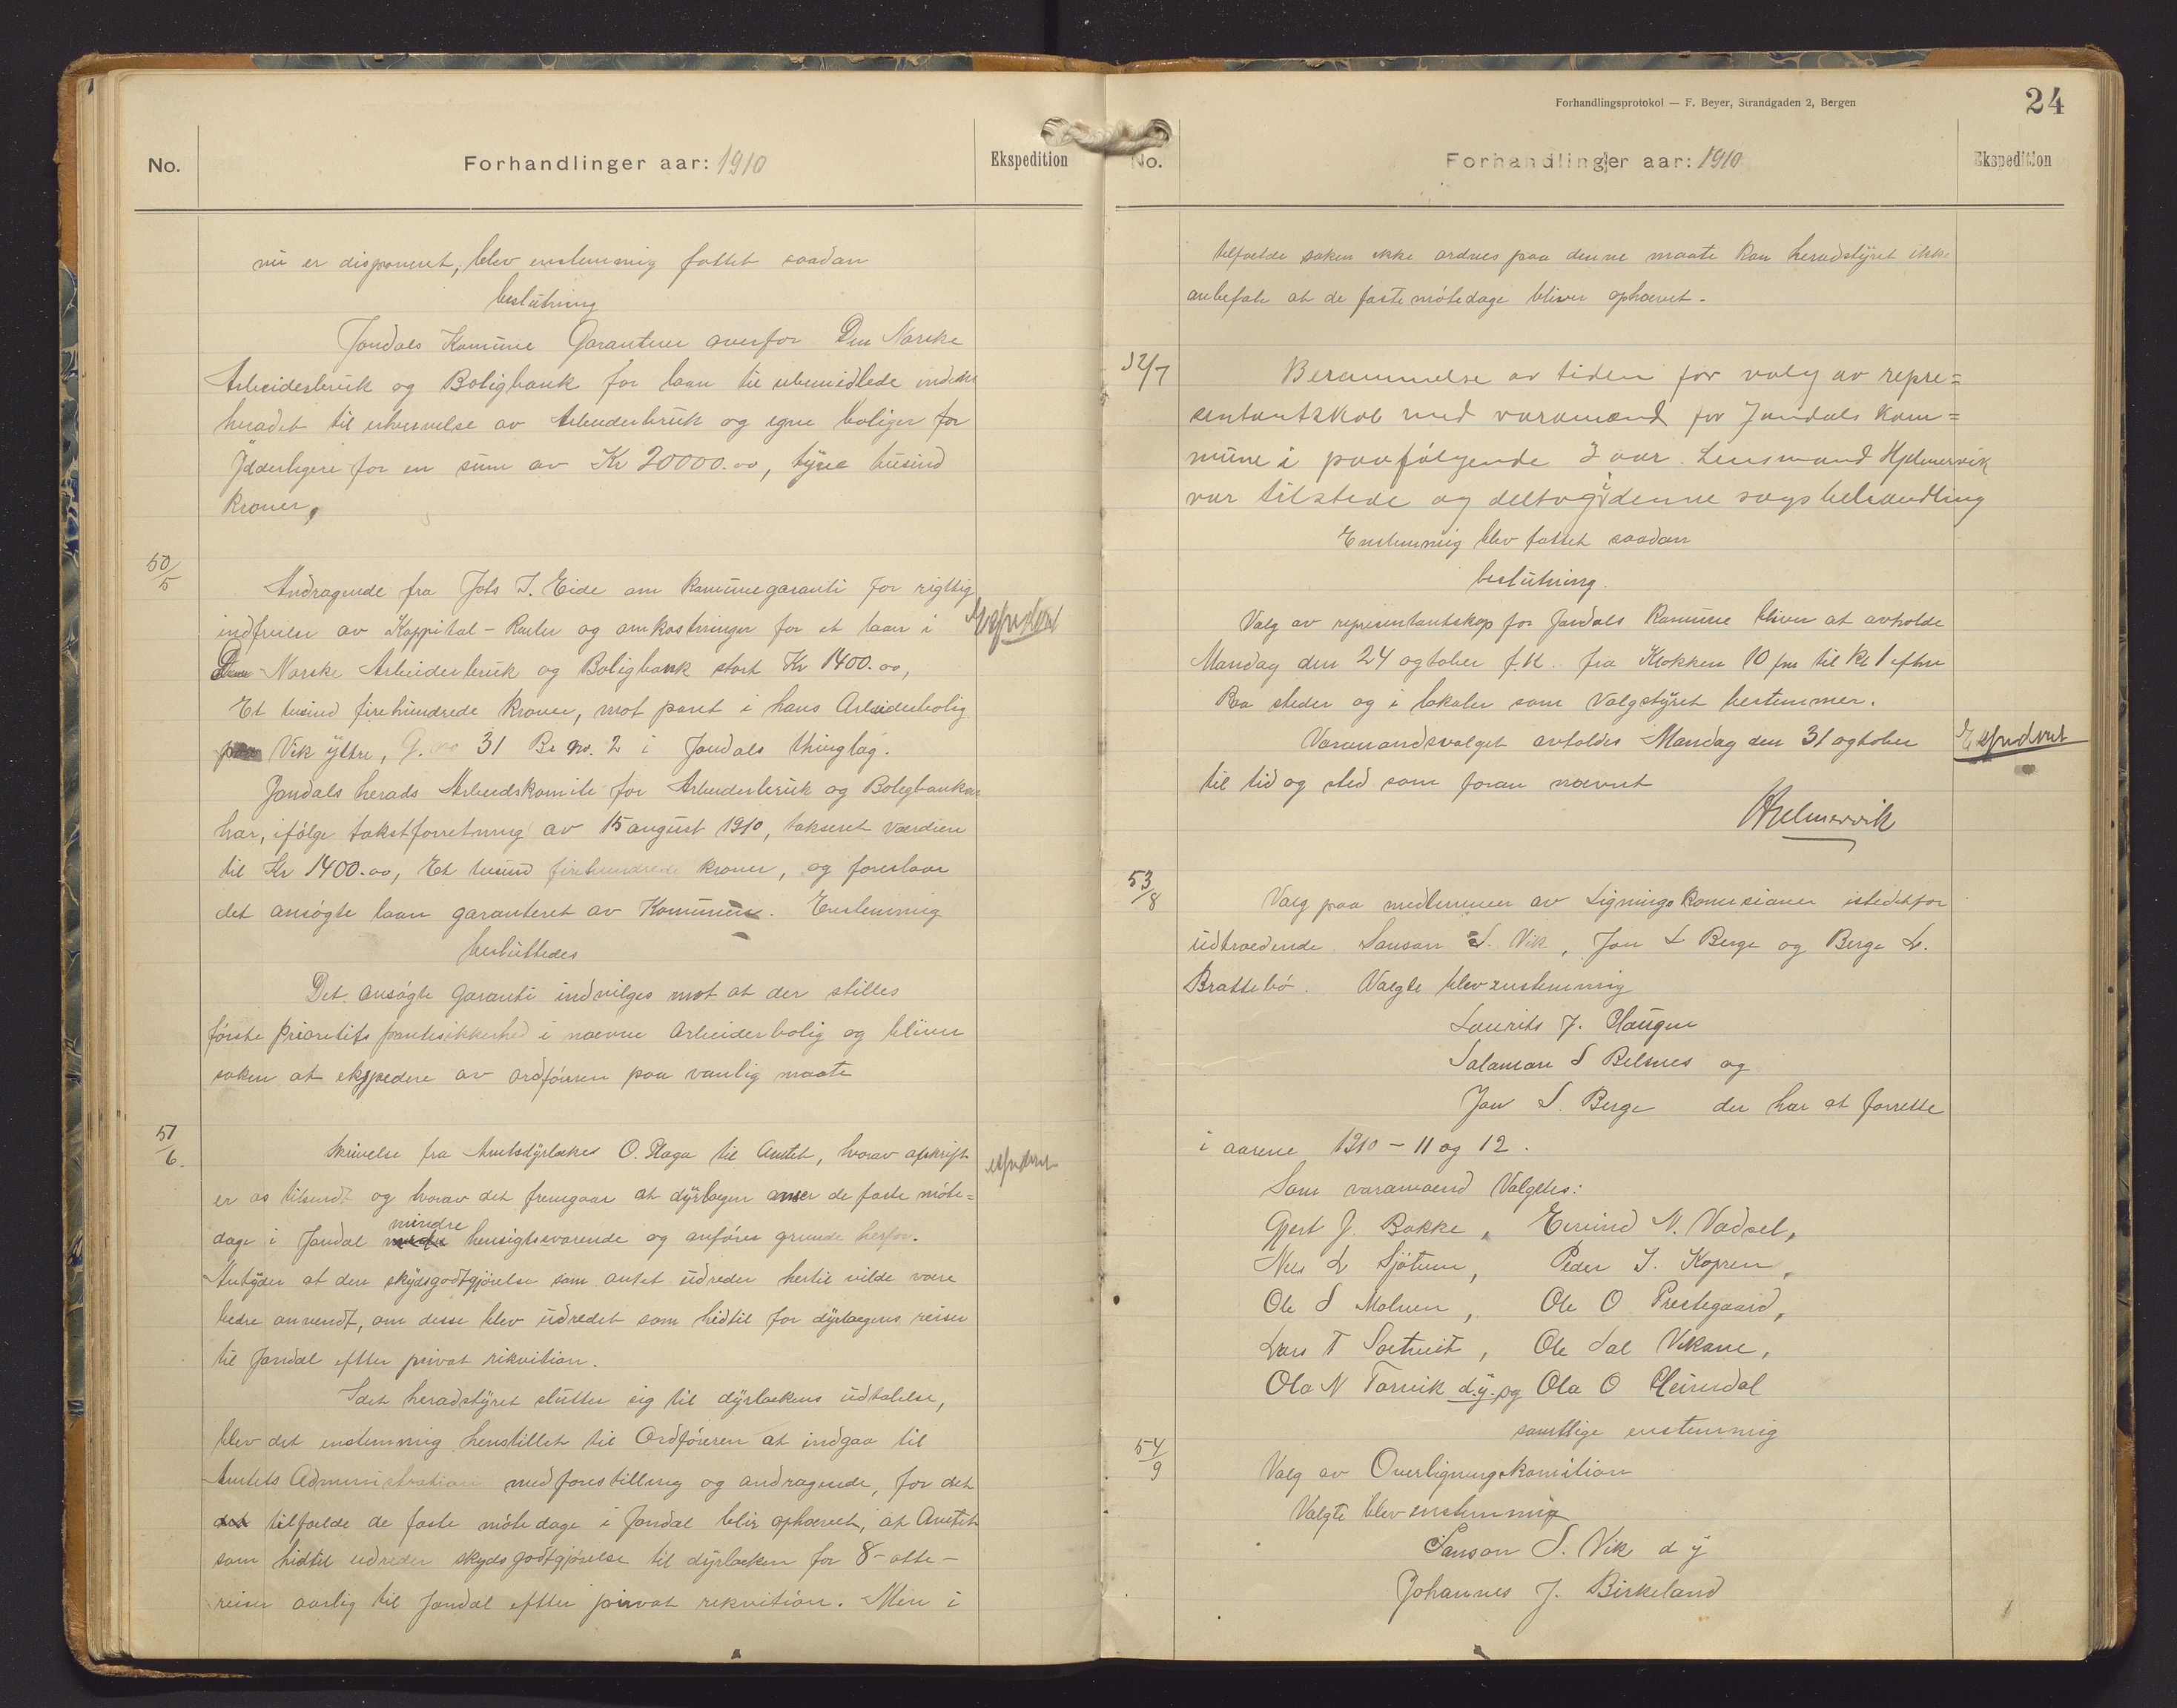 No.
Forhandlinger aar: 1910
Ekspedition
nu er disponeret, blev enstemmig fattet saadan
beslutning
Jondals Komune Garanterer overfor Den Norske
Arbeiderbruk og Boligbank for laan til ubemidlede inden
heradet til erhvervelse av Arbeiderbruk og egne boliger for
Yderligere for en sum av Kr 20000.00, tyve tusind
kroner,
50/5
Andragende fra Johs J. Eide om komunegaranti for rigttig
indfrielse av Kappital - Renter og omkostninger for et laan i
Ekspedert
Den Norske Arbeiderbruk og Boligbank stort Kr 1400.00,
Et tusind firehundrede kroner, mot pant i hans Arbeiderbolig
paa Vik yttre, G. no 31 Br no. 2 i Jondals thinglag.
Jondals herads Arbeidskomite for Arbeiderbruk og Boligbanken
har, ifölge takstforretning av 15 august 1910, takseret værdien
til Kr 1400.00, Et tusind firehundrede kroner, og foreslaar
det ansögte laan garanteret av Komunen. Enstemmig
besluttedes
Det ansögte Garanti indvilges mot at der stilles
förste Prioritets pantesikkerhed i nævne Arbeiderbolig og bliver
saken at ekspedere av ordföreren paa vanlig maate
51/6.
Skrivelse fra Amtsdyrlæke O. Haga til Amtet, hvorav afskrift
ekspedert
er os tilsendt og hvorav det fremgaar at dyrlægen anser de faste möte=
dage i Jondal mindre hensigtssvarende og anförer grunde herfor.
Antyder at den skydsgodtgjörelse som amtet udreder hertil vilde være
bedre anvendt, om desse blev udredet som hidtil for dyrlægens reiser
til Jondal efter privat rikvition.
Idet heradstyret slutter sig til dyrlækens udtalelse,
blev det enstemmig henstillet til Ordföreren at indgaa til
Amtets Administration med forestilling og andragende, for det
det tilfælde de faste möte dage i Jondal blir ophævet, at Amtet
som hidtil udreder skydsgodtgjörelse til dyrlæken for 8 - otte -
reiser aarlig til Jondal efter privat rekvition. Men i
Forhandlingsprotokol — F. Beyer, Strandgaden 2, Bergen
24
No.
Forhandlinger aar: 1910
Ekspedition
tilfælde saken ikke ordnes paa denne maate kan heradstyret ikke
anbefale at de faste mötedage bliver ophævet.
52/7
Berammelse av tiden for valg av repre=
sentantskab med varamænd for Jondals kom=
mune i paafölgende 3 aar. Lensmand Hjelmervik
var tilstede og deltog i denne sags behandling
Enstemmig blev fattet saadan
beslutning.
Valg av representantskap for Jondals Komune bliver at avholde
Mandag den 24 ogtober f.k. fra Klokken 10 fm til kl 1 efterm
Paa steder og i lokaler som Valgstyret bestemmer.
Varamandsvalget avholdes Mandag den 31 ogtober
Ekspedert
til tid og sted som foran nævnt
Hjelmervik
53/8
Valg paa medlemmer av Lignings komisioner istedetfor
udtrædende Samson S. Vik, Jon L Berge og Berge L.
Brattebö. Valgte blev enstemmig
Laurits J. Haugen
Salamon S Belsnes og
Jon S. Berge der har at forrette
i aarene 1910 - 11 og 12.
Som varamænd Valgtes:
Gjert J. Bakke, Eivind N. Vadsel,
Nils L Sjötun, Peder J. Kopren,
Ole S Molven, Ole O Prestegaard,
Lars T Sætveit, Ole Sal Vikane,
Ola N Torvik d.y. og Ola O Heimdal
samtlige enstemmig
54/9
Valg av Overligningskomition
Valgte blev enstemmig
Samson S. Vik d y
Johannes J. Birkeland